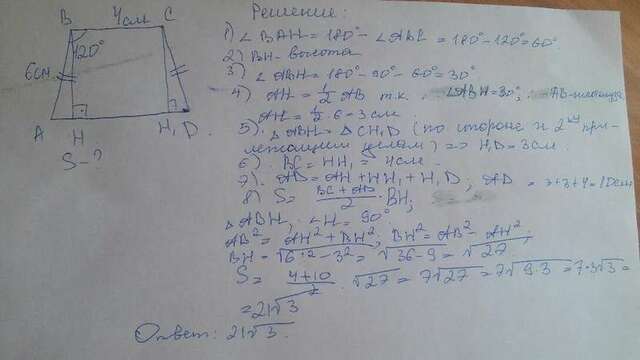 B 4см C
120°
6см
A H H₁ D
S - ?
Решение:
1) ∠BAH = 180° - ∠ABC = 180° - 120° = 60°
2) BH - высота
3) ∠ABH = 180° - 90° - 60° = 30°
4) AH = 1/2 AB т.к. ∠ABH = 30°, AB -
AH = 1/2 · 6 = 3 см
5) △ABH = △CH₁D (по стороне и 2ум при-
лежащим углам) => H₁D = 3см.
6) BC = HH₁ = 4см.
7) AD = AH + HH₁ + H₁D; AD = 3+3+4 = 10см
8) S = (BC + AD)/2 · BH;
△ABH, ∠H = 90°
AB² = AH² + BH²; BH² = AB² - AH²
BH = √6^2 - 3² = √36 - 9 = √27
S = (4+10)/2 · √27 = 7√27 = 7√9·3 = 7·3√3 =
= 21√3
Ответ: 21√3.